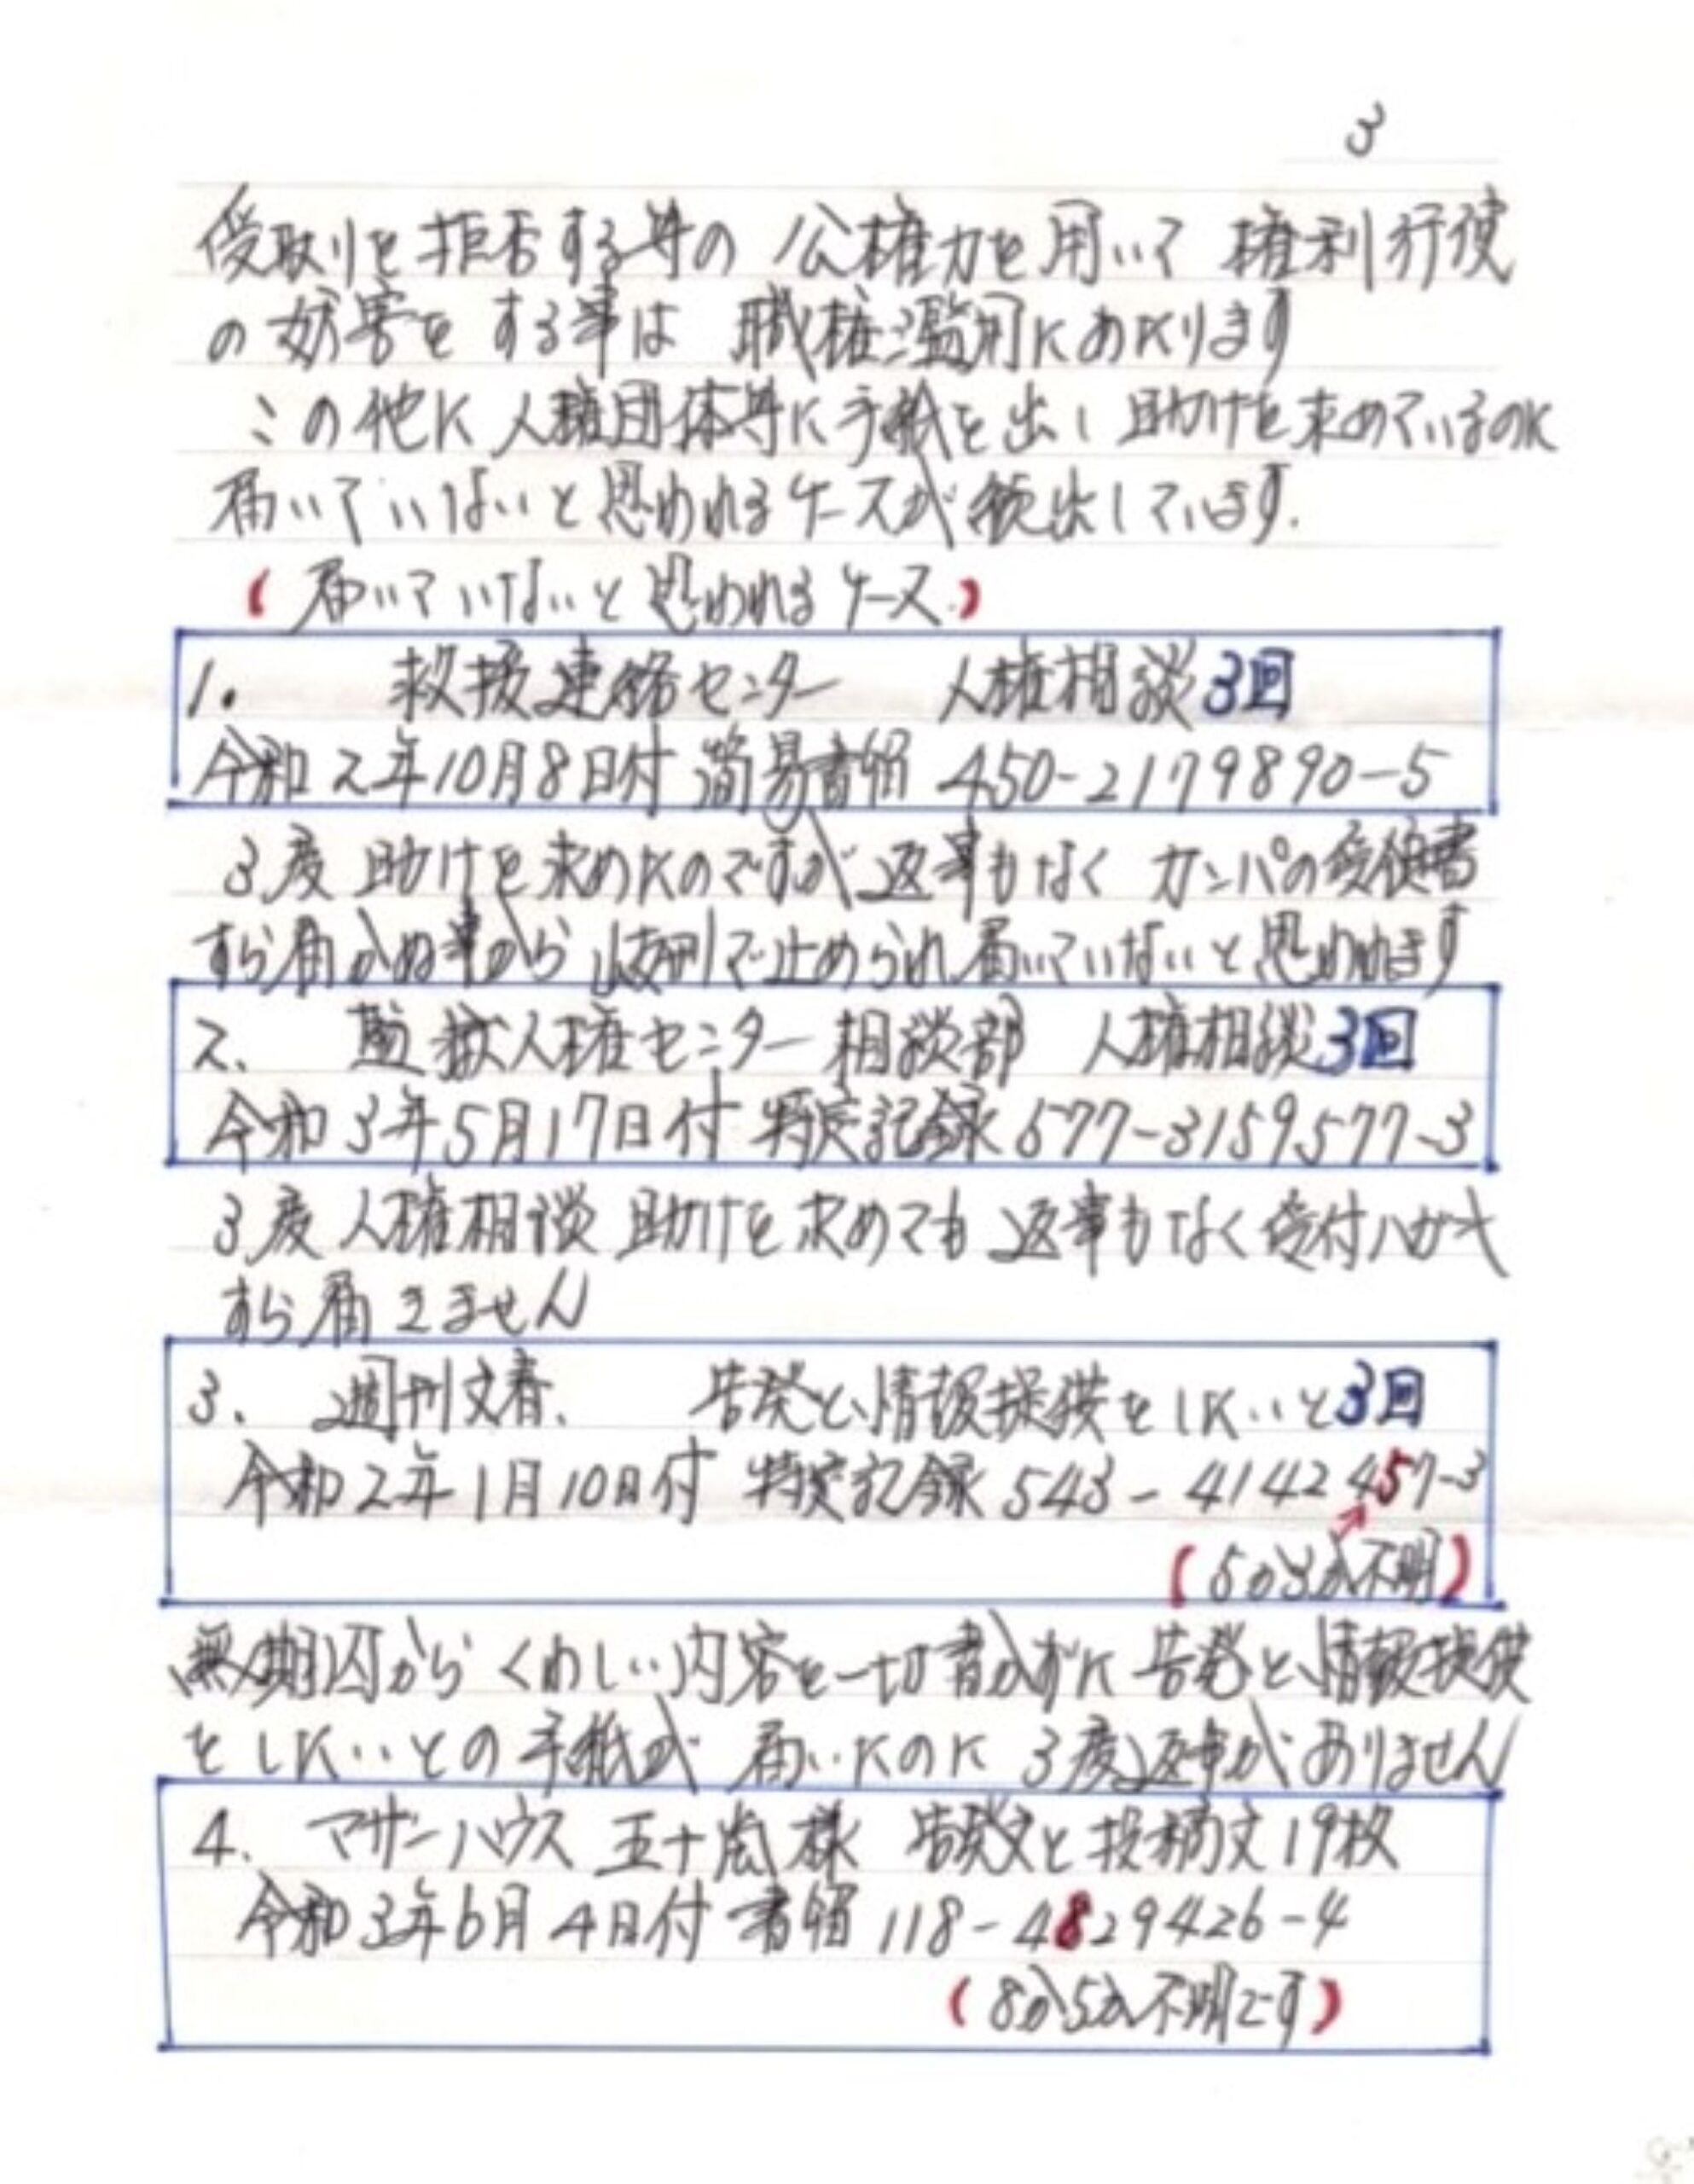 3
受取りを拒否する等の 公権力を用いて 権利行使
の妨害を する事は 職権濫用にあたります
この他に人権団体等に手紙を出し 助けを求めているのに
届いていないと思われるケースが続出しています.
(届いていないと思われるケース.)
1. 救援連絡センター 人権相談3回
令和2年10月8日付 簡易書留 450-2179890-5
3度 助けを求めたのですが 返事もなく カンパの受領書
すら届かぬ事から 以前で止められ届いていないと思われます
2. 監獄人権センター 相談部 人権相談3回
令和3年5月17日付 特定記録 577-3159577-3
3度 人権相談 助けを求めても 返事もなく 受付ハガキ
すら届きません
3. 週刊文春. 告発と、情報提供をしたいと3回
令和2年1月10日付 特定記録 543-4142457-3
(5か3か不明)
無期囚から くわしい内容を一切書かずに 告発と、情報提供
をしたいとの手紙が 届いたのに 3度返事がありません
4. マザーハウス 五十嵐様 告発文と投稿文19枚
令和3年6月4日付 書留 118-4829426-4
(8か5か不明です)